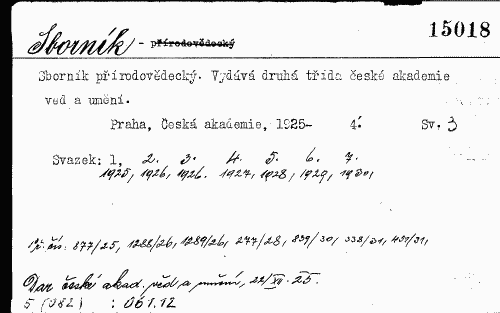 15018
Sborník - přírodovědecký
Sborník přírodovědecký. Vydává druhá třída české akademie
ved a umění.
Praha, Česká akademie, 1925- 4°. Sv. 3
Svazek: 1, 2. 3. 4. 5. 6. 7.
1925, 1926, 1926. 1927, 1928, 1929, 1930,
Př. čís: 877/25, 1288/26, 1289/26, 277/28, 839/30, 338/31, 437/31,
Dar české akad. věd a umění, 22/XII. 25.
5 (082) : 061.12